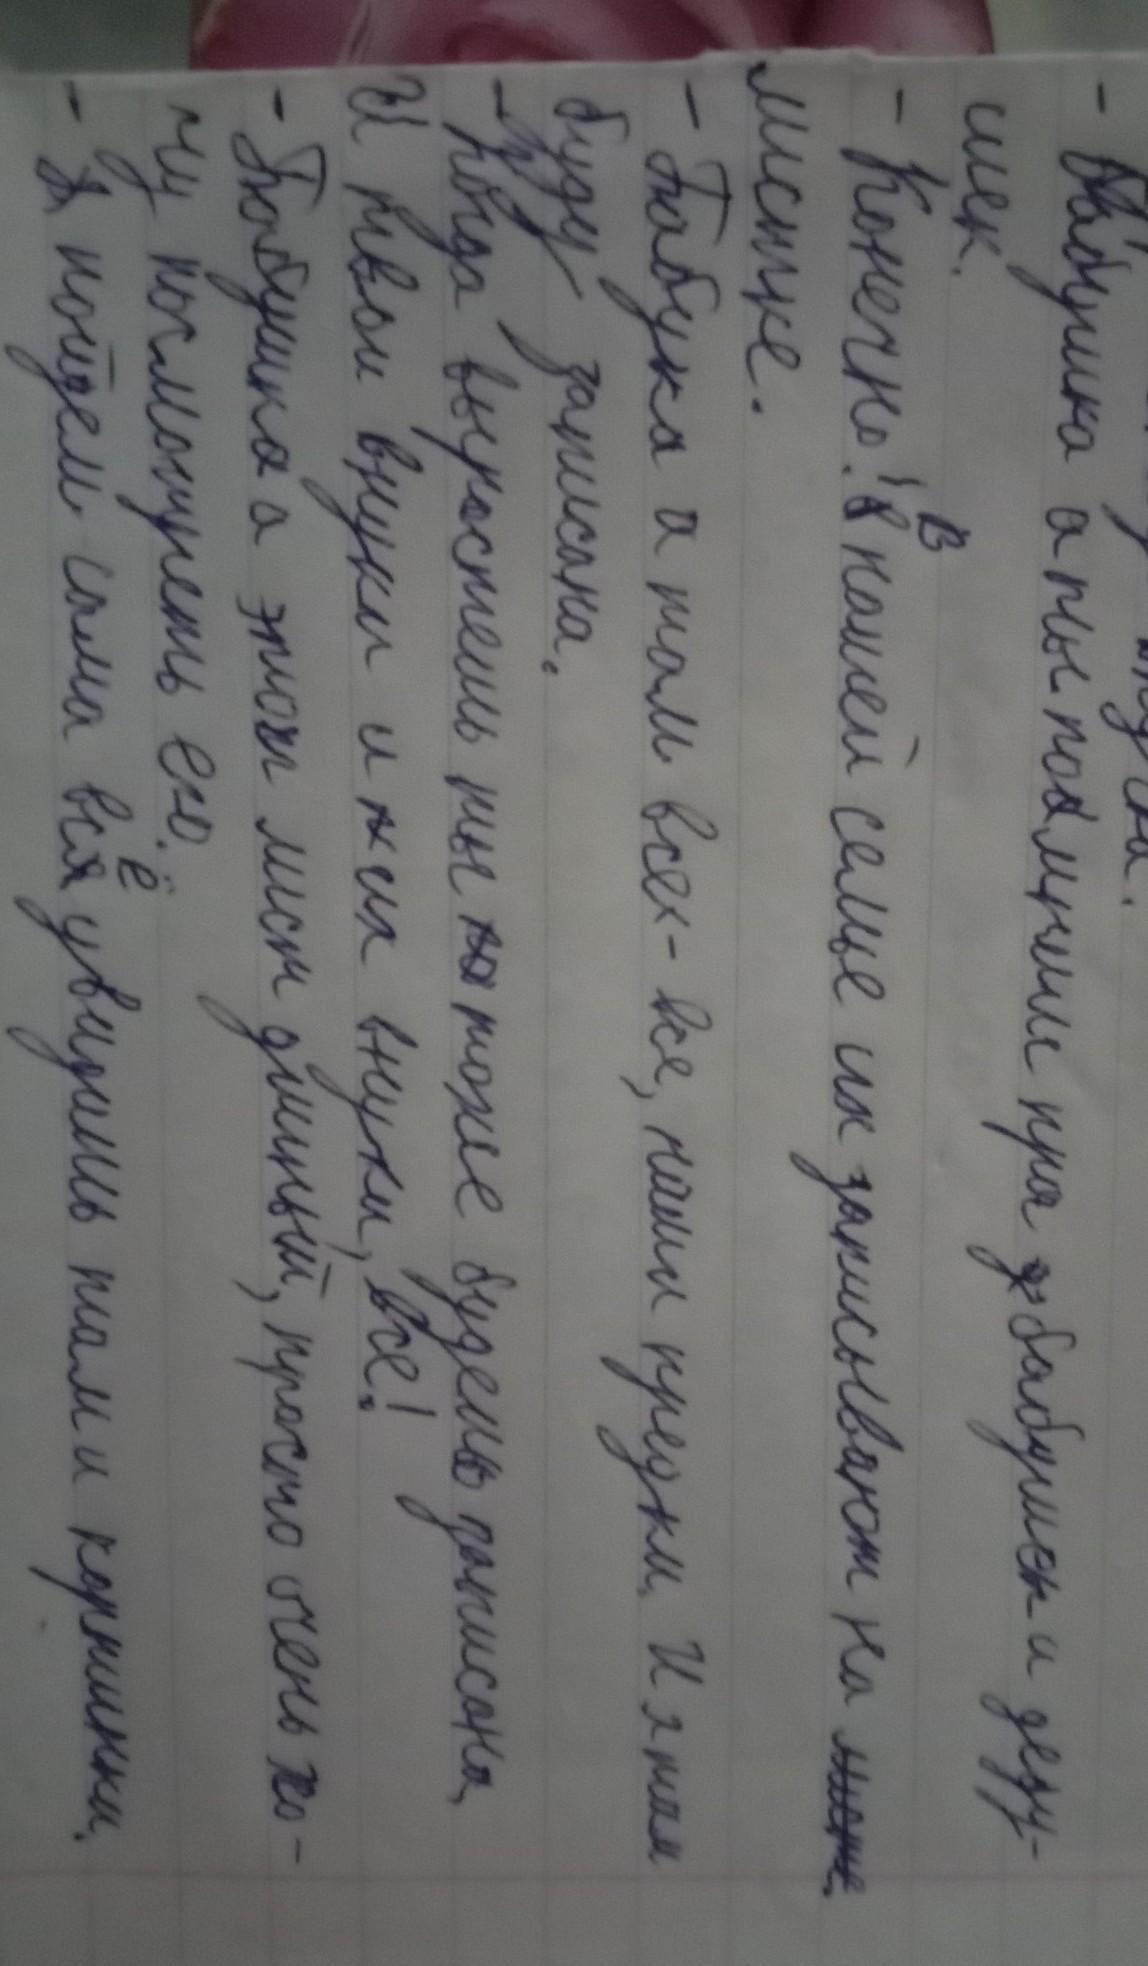 - Бабушка а ты помнишь пра бабушек и деду-
шек.
- Конечно! В нашей семье их записывают на
листике.
- Бабука а там всех-все, наши предки. И я там
буду записана.
- Когда выростешь ты тоже будешь записана,
И твои внуки и их внуки, все!
- Бабушка а этот лист длиный, просто очень хо-
чу посмотреть его.
- Я пойдем сама всё увидишь там и картинки.